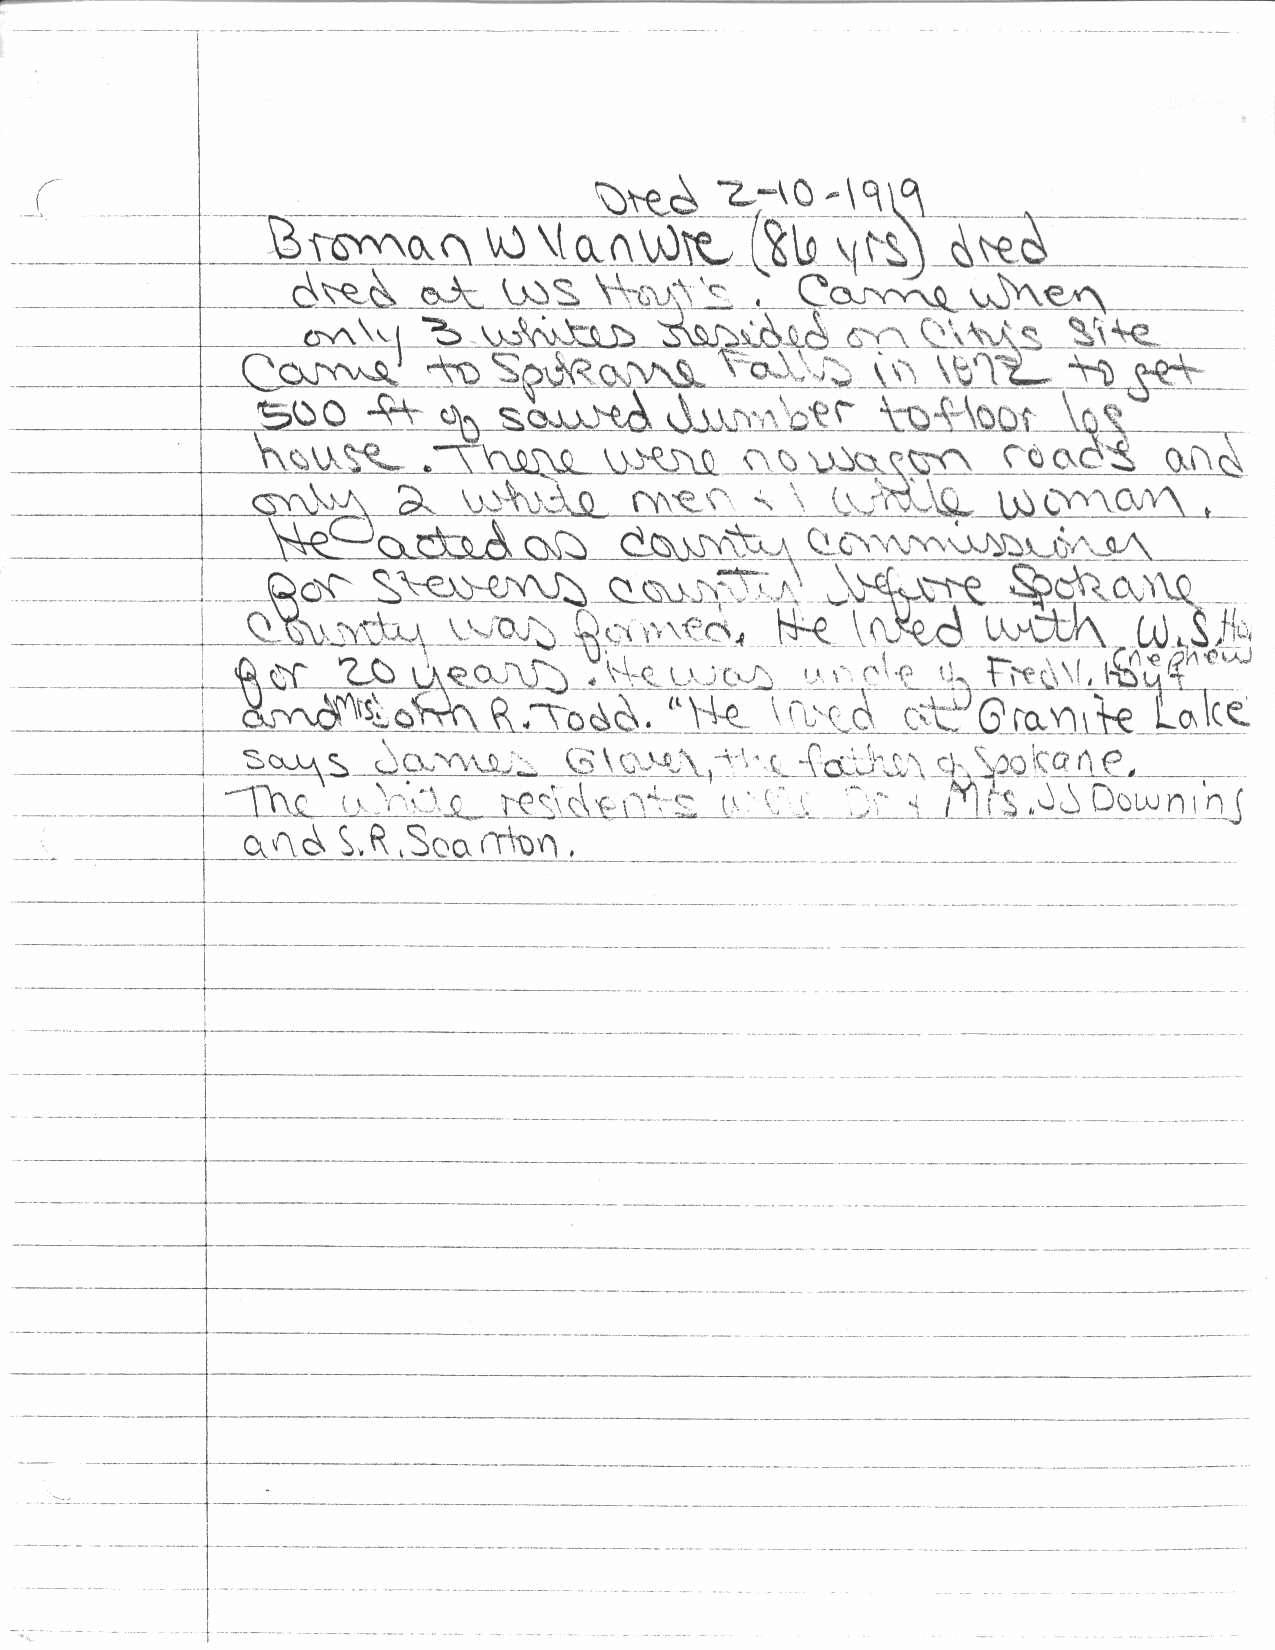 Died 2-10-1919
Broman W VanWie (86 yrs) died
died at WS Hoyt's. Came when
only 3 whites resided on Citys site
Came to Spokane Falls in 1872 to get
500 ft of sawed lumber to floor log
house. There were no wagon roads and
only 2 white men + 1 white woman.
He acted as county commissioner
for Stevens county before Spokane
County was formed. He lived with W.S. Ho
for 20 years. He was uncle of Fred V. Hoyt (nephew
and Mrs. John R. Todd. "He lived at Granite Lake
says James Glover, the father of Spokane.
The white residents were Dr + Mrs. JJ Downing
and S.R. Scamton.